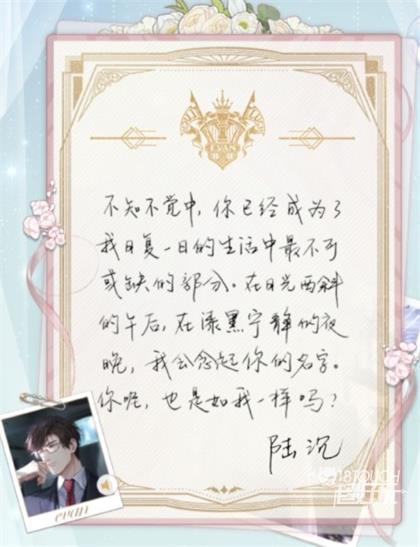 EVAN
不知不觉中，你已经成为了
我日复一日的生活中最不可
或缺的部分。在日光西斜
的午后，在漆黑宁静的夜
晚，我会念起你的名字。
你呢，也是如我一样吗？
陆沉
evan
18TOUCH